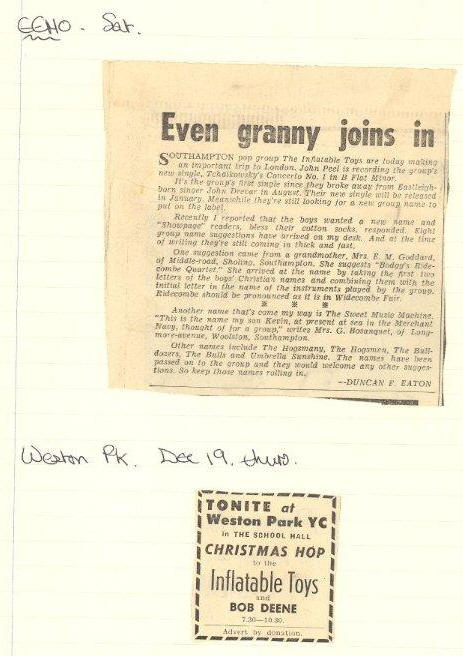 ECHO. Sat.
Even granny joins in
SOUTHAMPTON pop group The Inflatable Toys are today making
an important trip to London. John Peel is recording the group's
new single, Tchaikowsky's Concerto No. 1 in B Flat Minor.
It's the group's first single since they broke away from Eastleigh-
born singer John Drever in August. Their new single will be released
in January. Meanwhile they're still looking for a new group name to
put on the label.
Recently I reported that the boys wanted a new name and
"Showpage" readers, bless their cotton socks, responded. Eight
group name suggestions have arrived on my desk. And at the time
of writing they're still coming in thick and fast.
One suggestion came from a grandmother, Mrs. E. M. Goddard,
of Middle-road, Sholing, Southampton. She suggests "Bodgy's Ride-
combe Quartet." She arrived at the name by taking the first two
letters of the boys' Christian names and combining them with the
initial letter in the name of the instruments played by the group.
Ridecombe should be pronounced as it is in Widecombe Fair.
* * *
Another name that's come my way is The Sweet Music Machine.
"This is the name my son Kevin, at present at sea in the Merchant
Navy, thought of for a group," writes Mrs. G. Bosanquet, of Long-
more-avenue, Woolston, Southampton.
Other names include The Hogsmany, The Hogsmen, The Bull-
dozers, The Bulls and Umbrella Sunshine. The names have been
passed on to the group and they would welcome any other sugges-
tions. So keep those names rolling in.
—DUNCAN F. EATON
Weston Pk. Dec 19. thurs.
TONITE at
Weston Park YC
in THE SCHOOL HALL
CHRISTMAS HOP
to the
Inflatable Toys
and
BOB DEENE
7.30—10.30.
Advert by donation.